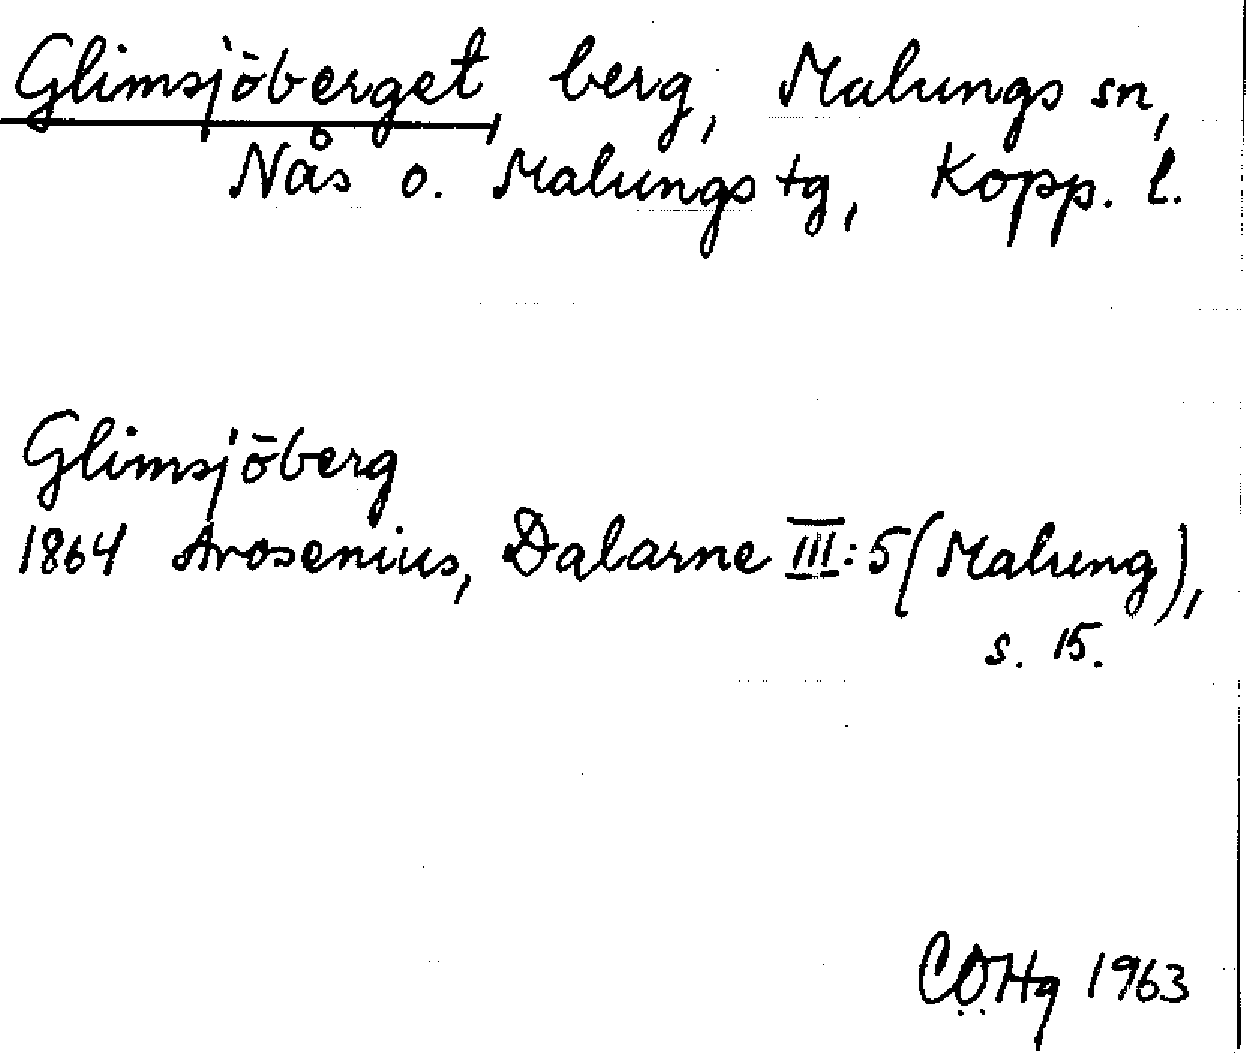 Glimsjöberget, berg, Malungs sn,
Nås o. Malungs tg, Kopp. l.
Glimsjöberg
1864 Arosenius, Dalarne III:5 (Malung),
s. 15.
CÖHg 1963